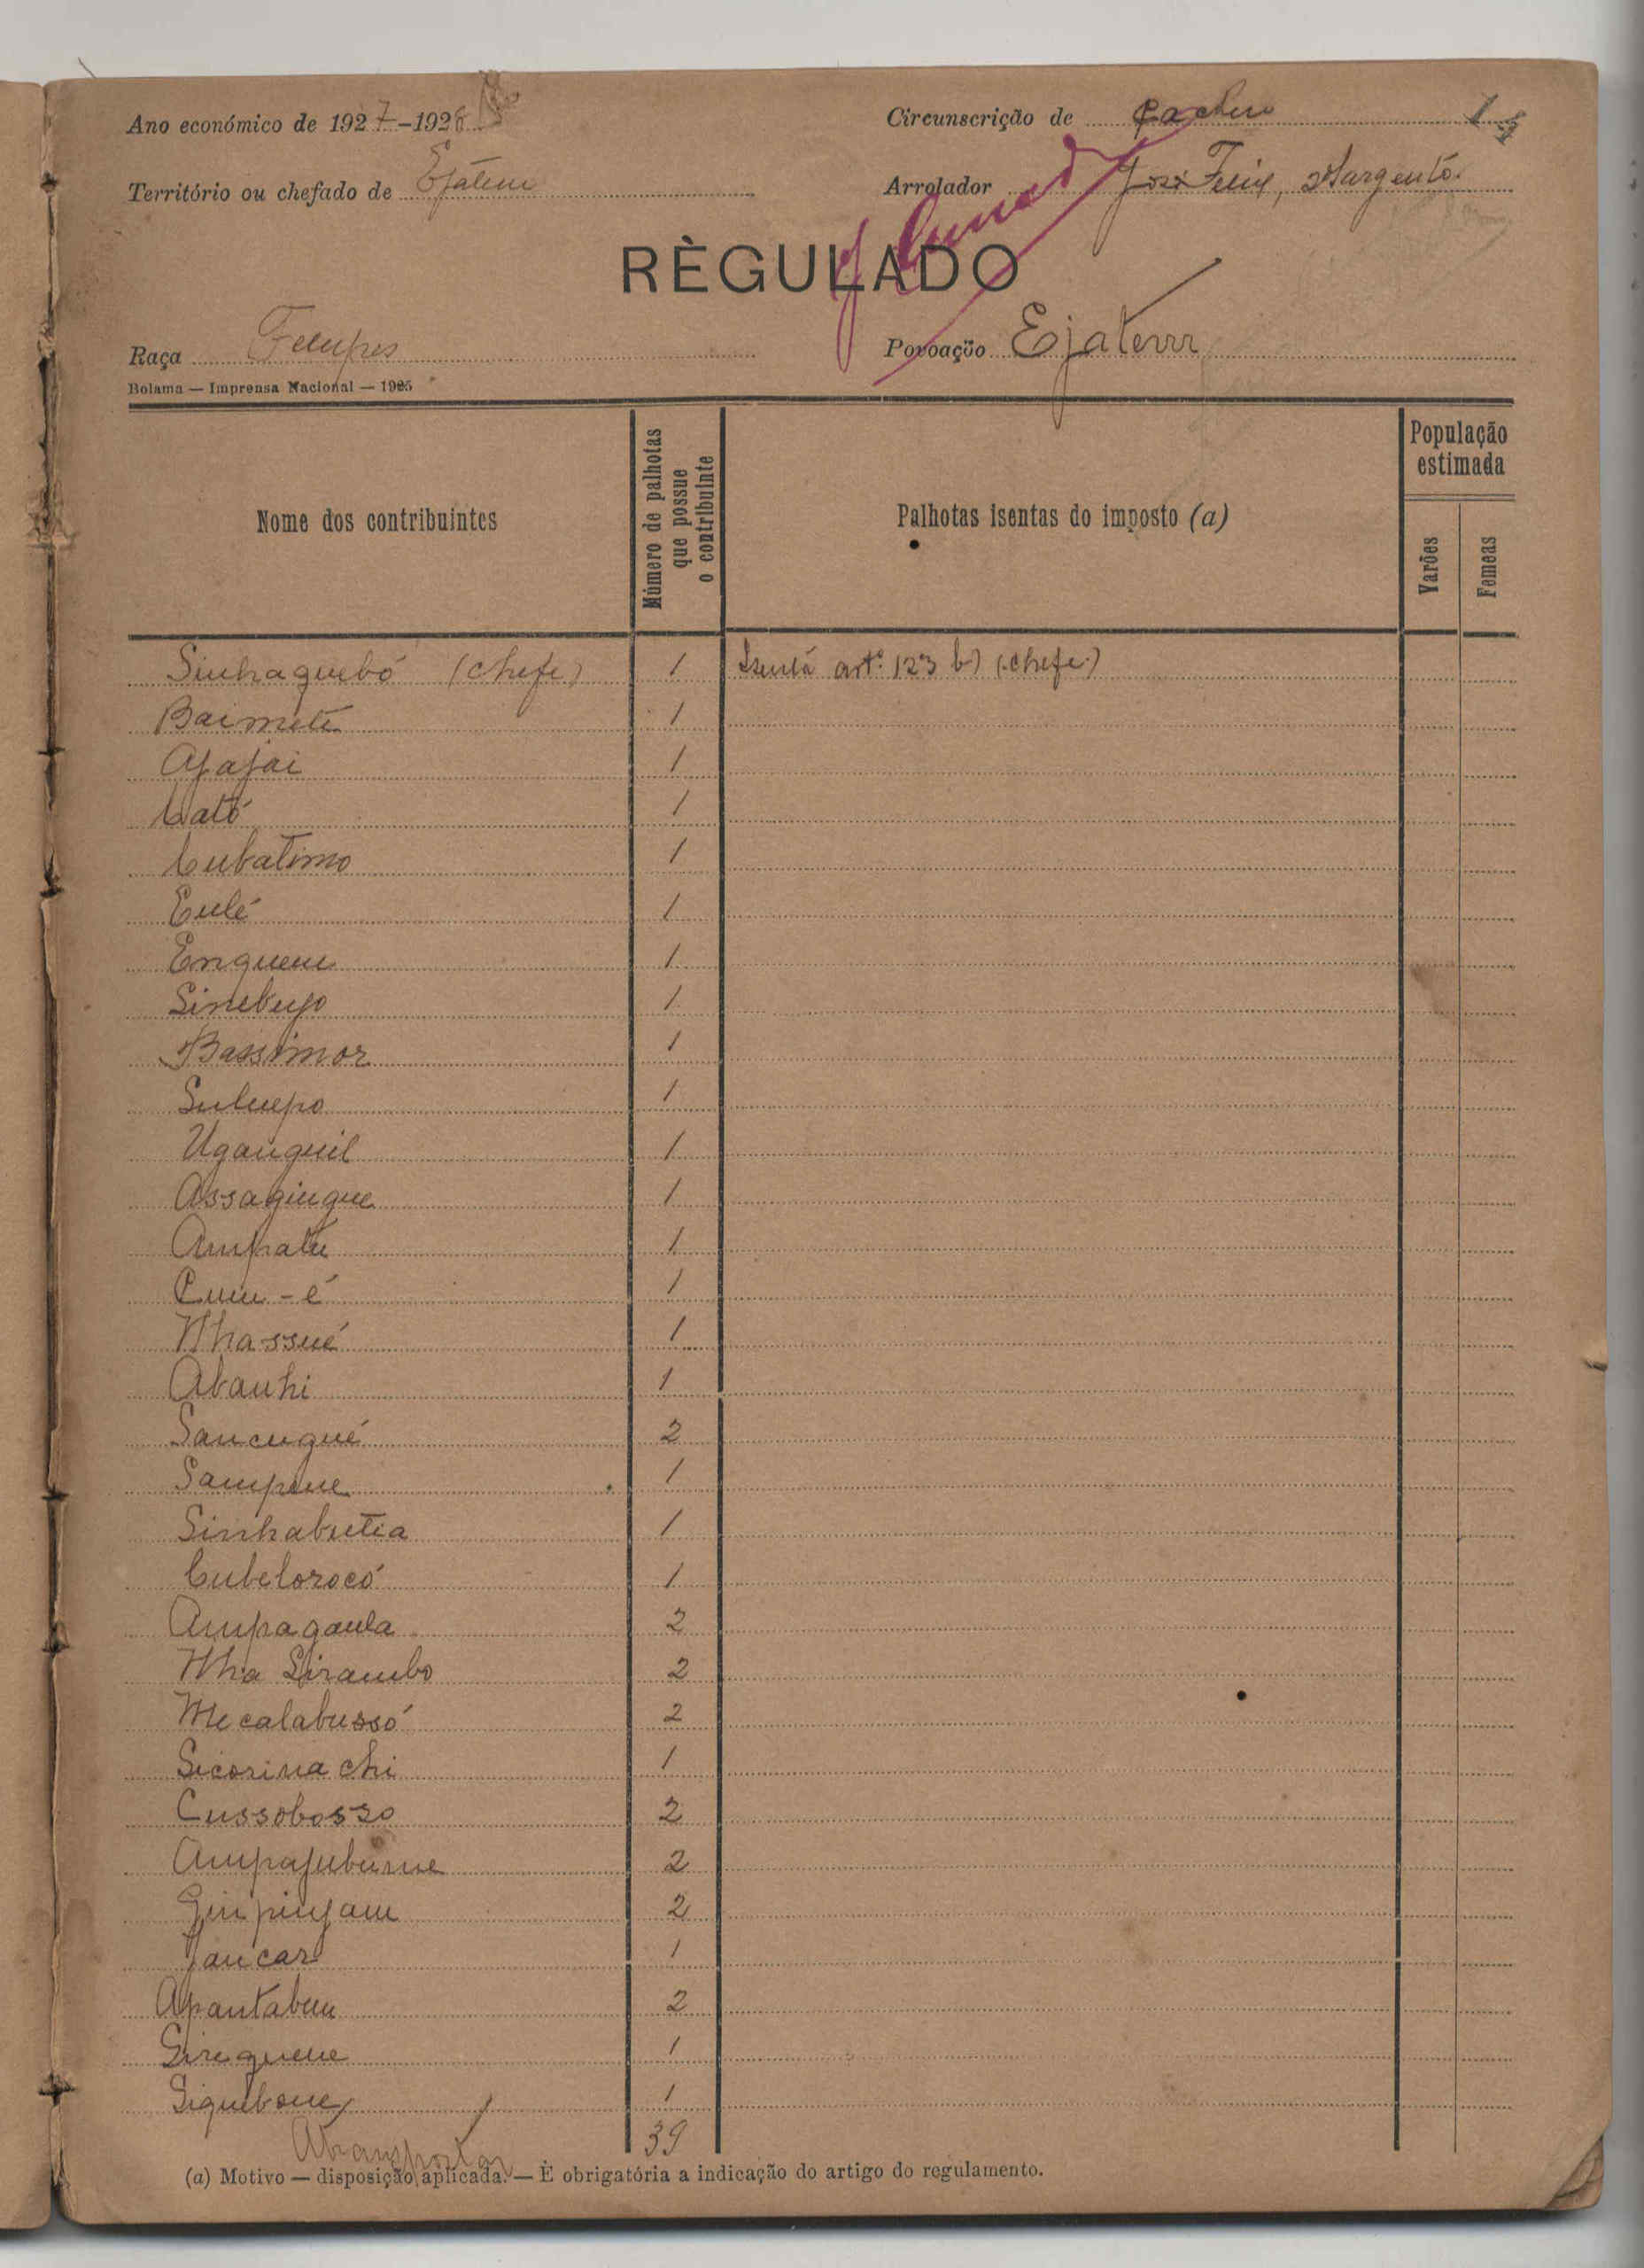 Ano económico de 1927-1928
Circunscrição de Cacheu
Território ou chefado de Ejatem
Arrolador José Felix, Sargento.
RÈGULADO
Raça Felupes
Povoação Ejatem
Bolama — Imprensa Nacional — 1925
Nome dos contribuintes
Número de palhotas que possue o contribuinte
Palhotas isentas do imposto (a)
População estimada
Varões
Femeas
Sinhaguebó (chefe) 1 Isentá artº 123 b) (chefe)
Baimete 1
Ajajai 1
Cató 1
Cubatimo 1
Eulé 1
Enquem 1
Sinebujo 1
Bassimor 1
Suluepo 1
Uganguil 1
Assagingue 1
Ampatu 1
Cuiu-é 1
Nhassué 1
Abanhi 1
Sancugué 2
Sampene 1
Sinhabutia 1
Cubelorocó 1
Ampagaula 2
Nha Sirambo 2
Mecalabussó 2
Sicorinachi 1
Cussobosso 2
Ampajubume 2
Ginpinjam 2
Jancar 1
Apantabem 2
Sireguene 1
Siquebone 1
A transportar 39
(a) Motivo — disposição aplicada. — È obrigatória a indicação do artigo do regulamento.